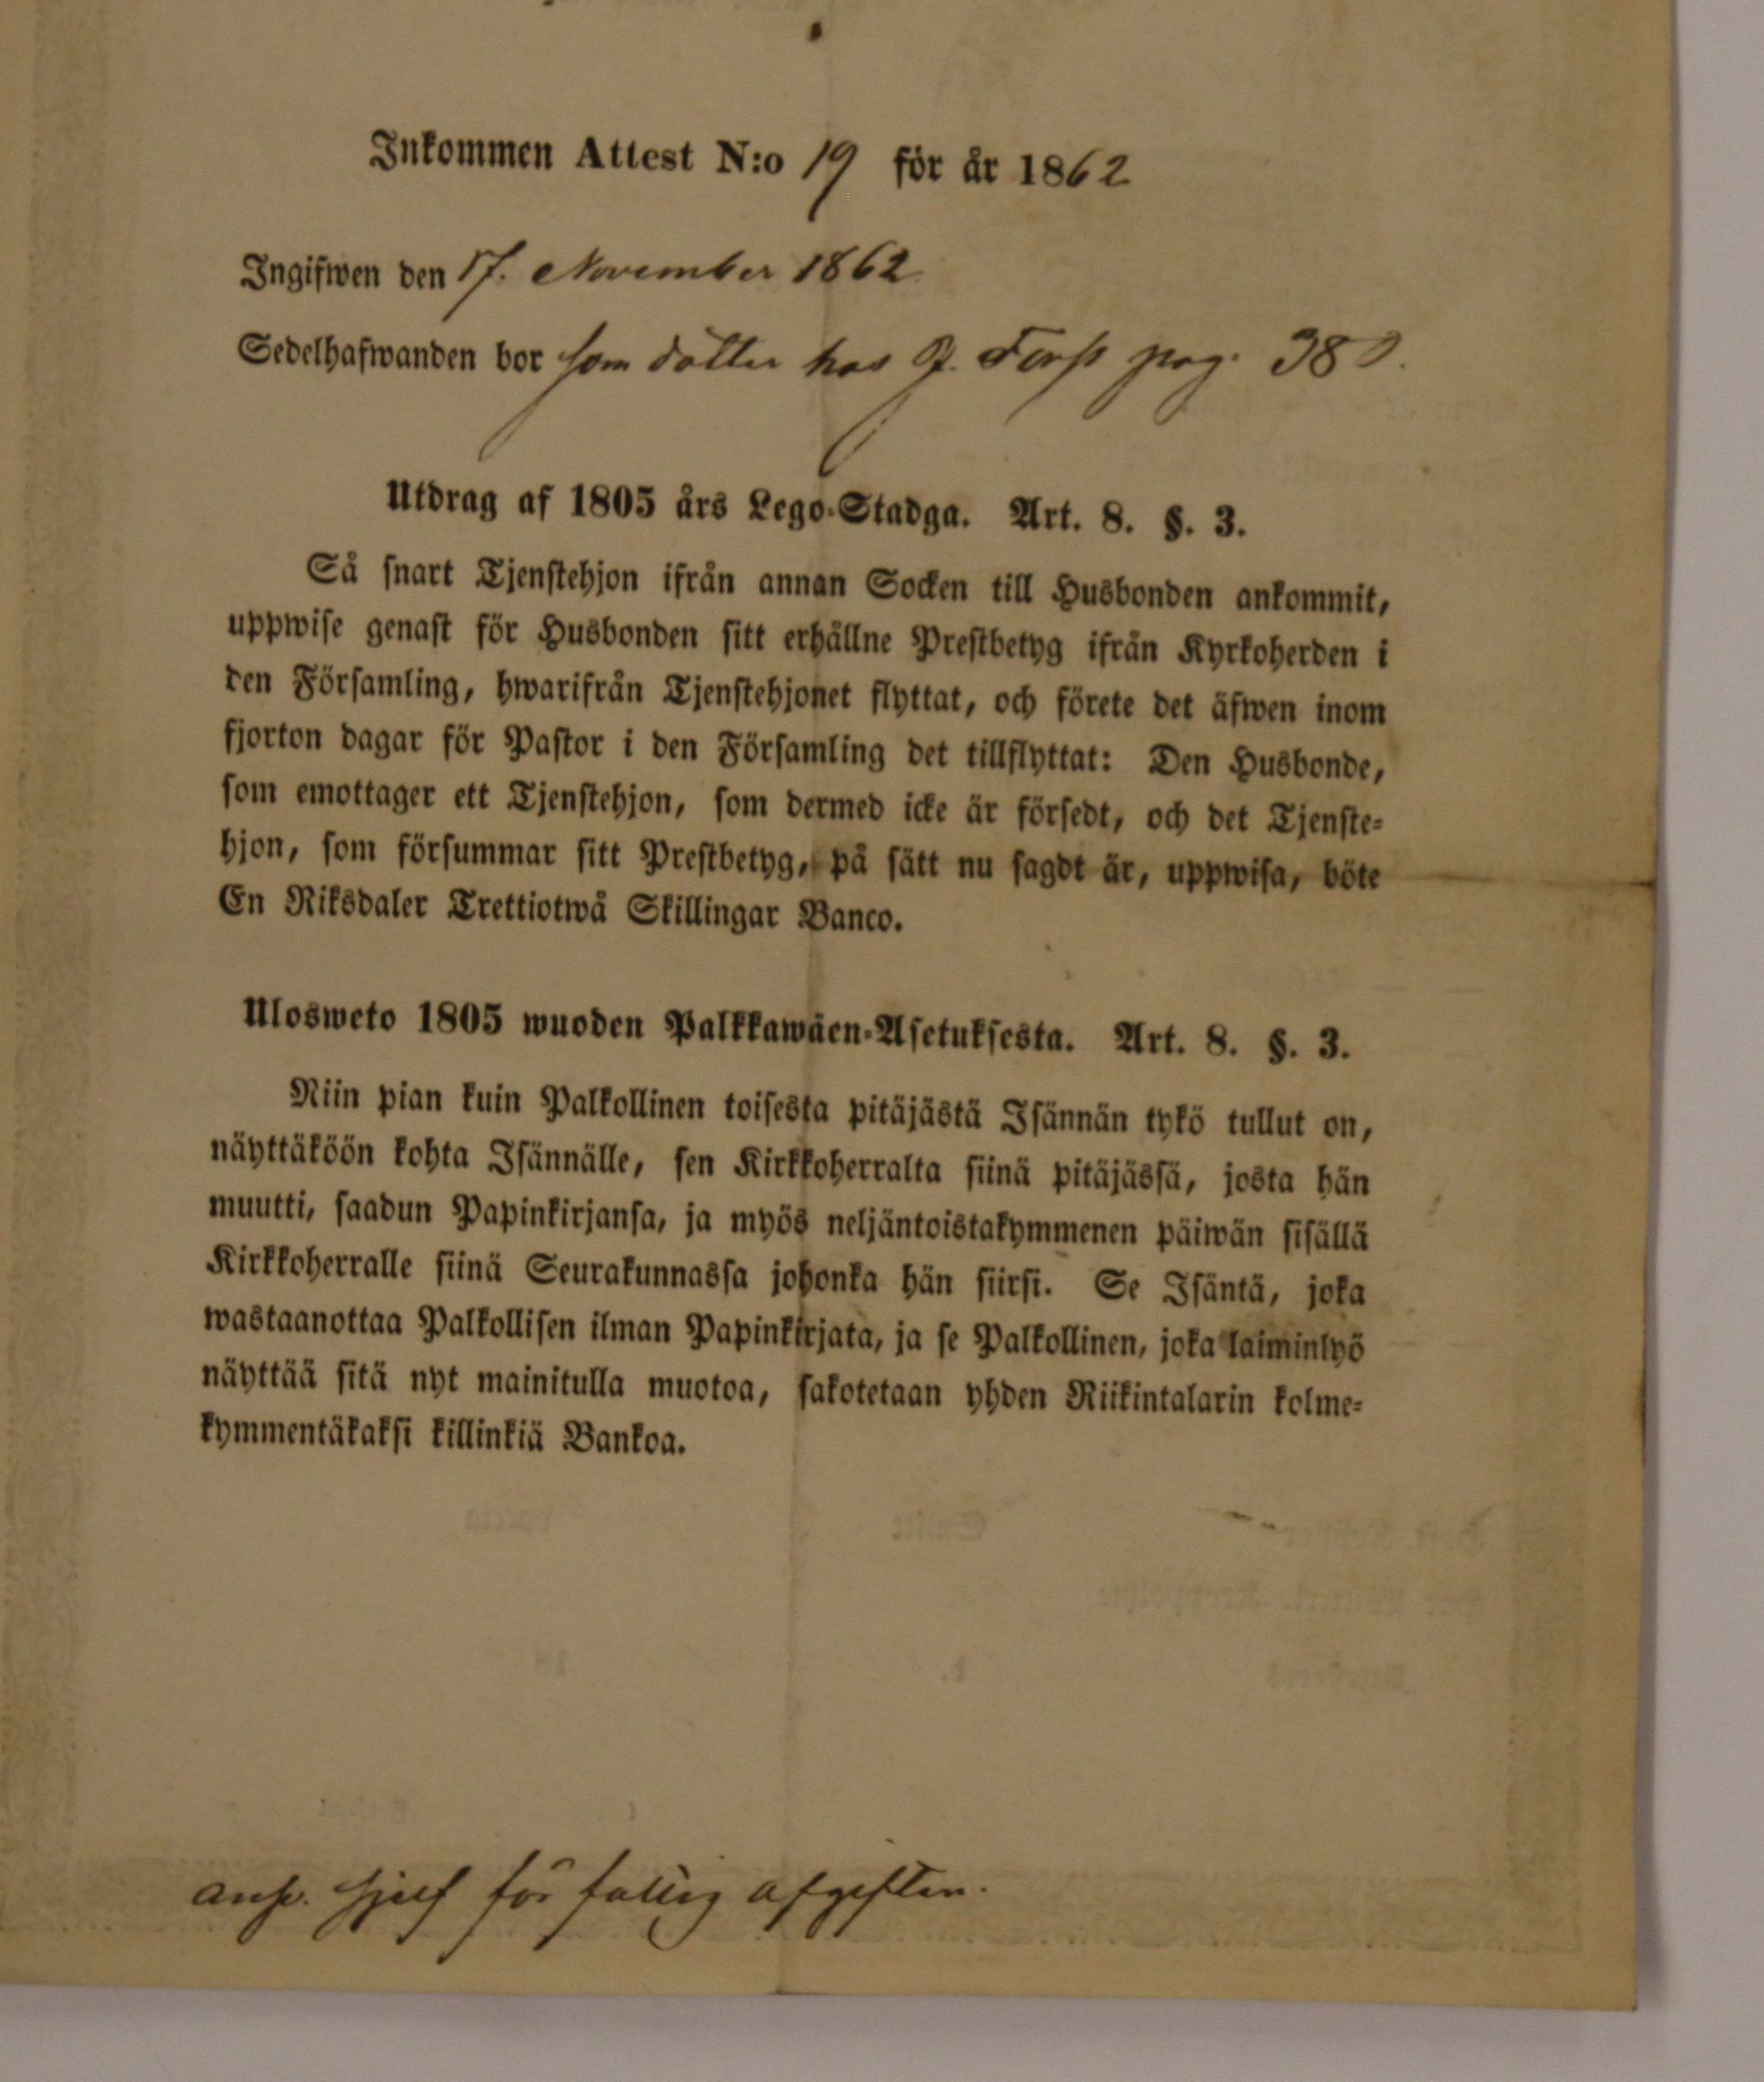 Inkommen Attest N:o 19 för år 1862
Ingifwen den 17. November 1862
Sedelhafwanden bor som dotter hos pag. 380.
Utdrag af 1805 års Lego-Stadga. Art. 8. §. 3.
Så snart Tjenstehjon ifrån annan Socken till Husbonden ankommit,
uppwise genast för Husbonden sitt erhållne Prestbetyg ifrån Kyrkoherden i
den Församling, hwarifrån Tjenstehjonet flyttat, och förete det äfwen inom
fjorton dagar för Pastor i den Församling det tillflyttat: Den Husbonde,
som emottager ett Tjenstehjon, som dermed icke är försedt, och det Tjenste-
hjon, som försummar sitt Prestbetyg, på sätt nu sagdt är, uppwisa, böte
En Riksdaler Trettiotwå Skillingar Banco.
Ulosweto 1805 wuoden Palkkawäen-Asetuksesta. Art. 8. §. 3.
Niin pian kuin Palkollinen toisesta pitäjästä Isännän tykö tullut on,
näyttäköön kohta Isännälle, sen Kirkkoherralta siinä pitäjässä, josta hän
muutti, saadun Papinkirjansa, ja myös neljäntoistakymmenen päiwän sisällä
Kirkkoherralle siinä Seurakunnassa johonka hän siirsi. Se Isäntä, joka
wastaanottaa Palkollisen ilman Papinkirjata, ja se Palkollinen, joka laiminlyö
näyttää sitä nyt mainitulla muotoa, sakotetaan yhden Riikintalarin kolme-
kymmentäkaksi killinkiä Bankoa.
answ. sjelf för fallig afgiften.